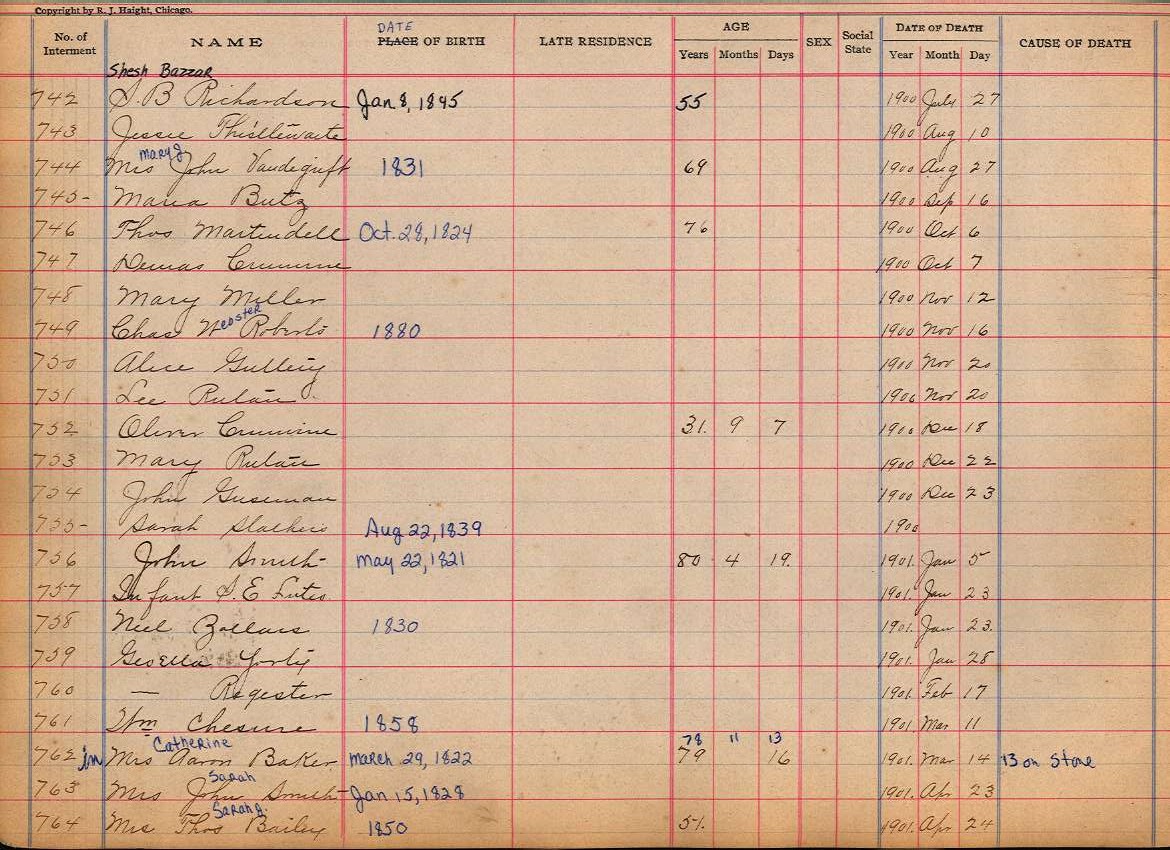 Copyright by R. J. Haight, Chicago.
No. of Interment NAME DATE PLACE OF BIRTH LATE RESIDENCE AGE Years Months Days SEX Social State DATE OF DEATH Year Month Day CAUSE OF DEATH
Shesh Bazzar
742 S. B Richardson Jan 8, 1845 55 1900 July 27
743 Jessie Thistlewaite 1900 Aug 10
mary J
744 Mrs John Vandegrift 1831 69 1900 Aug 27
745- Maria Butz 1900 Sep 16
746 Thos Martindell Oct. 28, 1824 76 1900 Oct 6
747 Demas Crumrine 1900 Oct 7
748 Mary Miller 1900 Nov 12
749 Chas Webster Roberts 1880 1900 Nov 16
750 Alice 1900 Nov 20
751 Lee Rutan 1900 Nov 20
752 Oliver Crumrine 31. 9 7 1900 Dec 18
753 Mary Rutan 1900 Dec 22
754 John Guseman 1900 Dec 23
755- Sarah Aug 22, 1839 1900
756 John Smith May 22, 1821 80 4 19. 1901. Jan 5
757 Infant S. E Lutes 1901. Jan 23
758 Neil Zollars 1830 1901. Jan 23.
759 1901. Jan 28
760 — Regester 1901 Feb 17
761 Wm Chesure 1858 1901. Mar 11
Catherine 78 11 13
762 Mrs Aaron Baker march 29, 1822 79 16 1901. Mar 14 13 on Stone
Sarah
763 Mrs John Smith Jan 15, 1828 1901. Apr 23
Sarah J.
764 Mrs Thos Bailey 1850 51. 1901. Apr 24